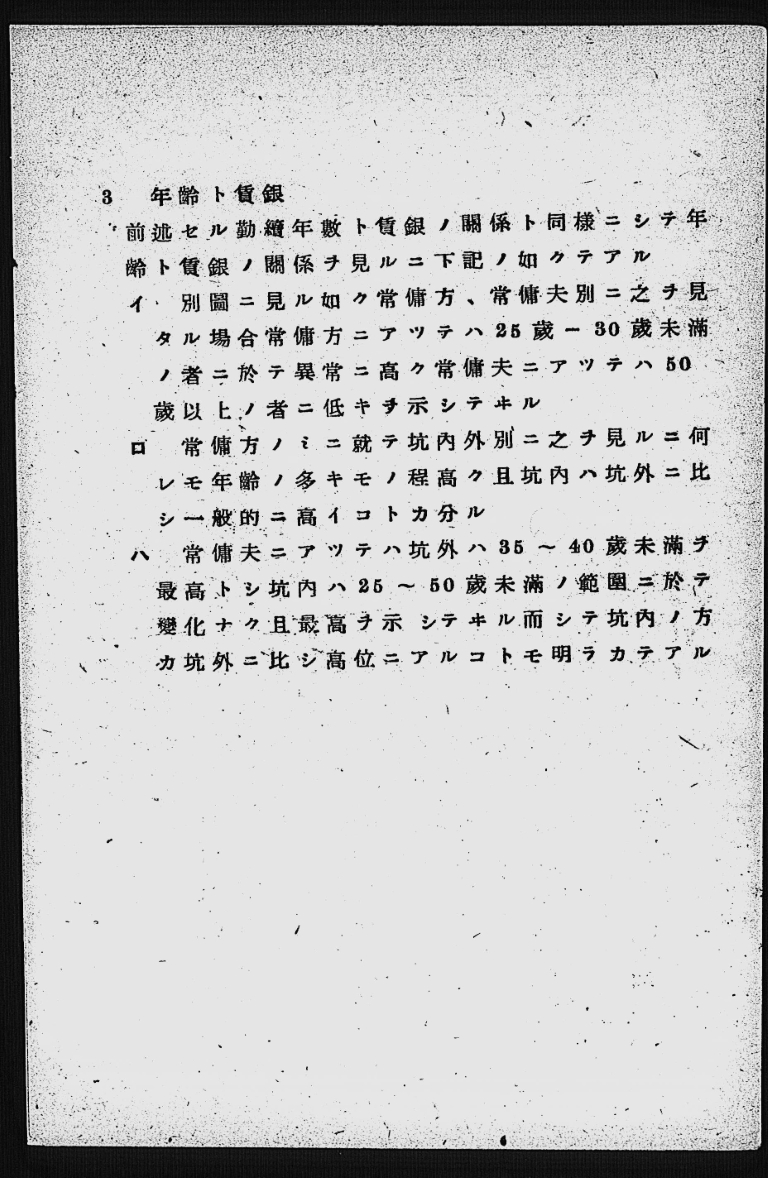 3　年齡ト賃銀
前述セル勤續年數ト賃銀ノ關係ト同樣ニシテ年
齡ト賃銀ノ關係ヲ見ルニ下記ノ如クテアル
イ　別圖ニ見ル如ク常傭方、常傭夫別ニ之ヲ見
タル場合常傭方ニアツテハ25歲ー30歲未滿
ノ者ニ於テ異常ニ高ク常傭夫ニアツテハ50
歲以上ノ者ニ低キヲ示シテヰル
ロ　常傭方ノミニ就テ坑內外別ニ之ヲ見ルニ何
レモ年齡ノ多キモノ程高ク且坑內ハ坑外ニ比
シ一般的ニ高イコトカ分ル
ハ　常傭夫ニアツテハ坑外ハ35～40歲未滿ヲ
最高トシ坑內ハ25～50歲未滿ノ範圍ニ於テ
變化ナク且最高ヲ示シテヰル而シテ坑內ノ方
カ坑外ニ比シ高位ニアルコトモ明ラカテアル